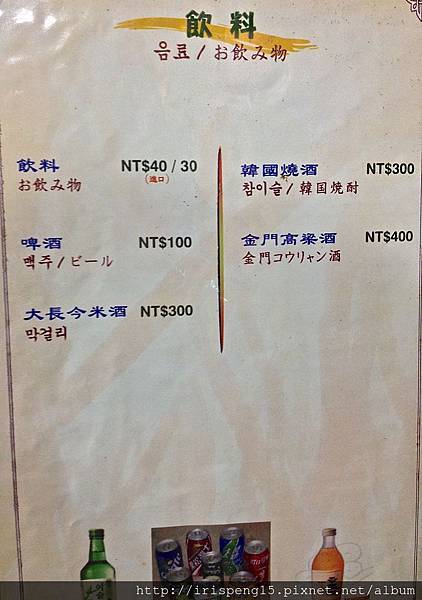 飲料
음료 / お飲み物
飲料 NT$40 / 30
(進口)
お飲み物
啤酒 NT$100
맥주 / ビール
大長今米酒 NT$300
막걸리
韓國燒酒 NT$300
참이슬 / 韓国焼酎
金門高粱酒 NT$400
金門コウリャン酒
http://irispeng15.pixnet.net/album